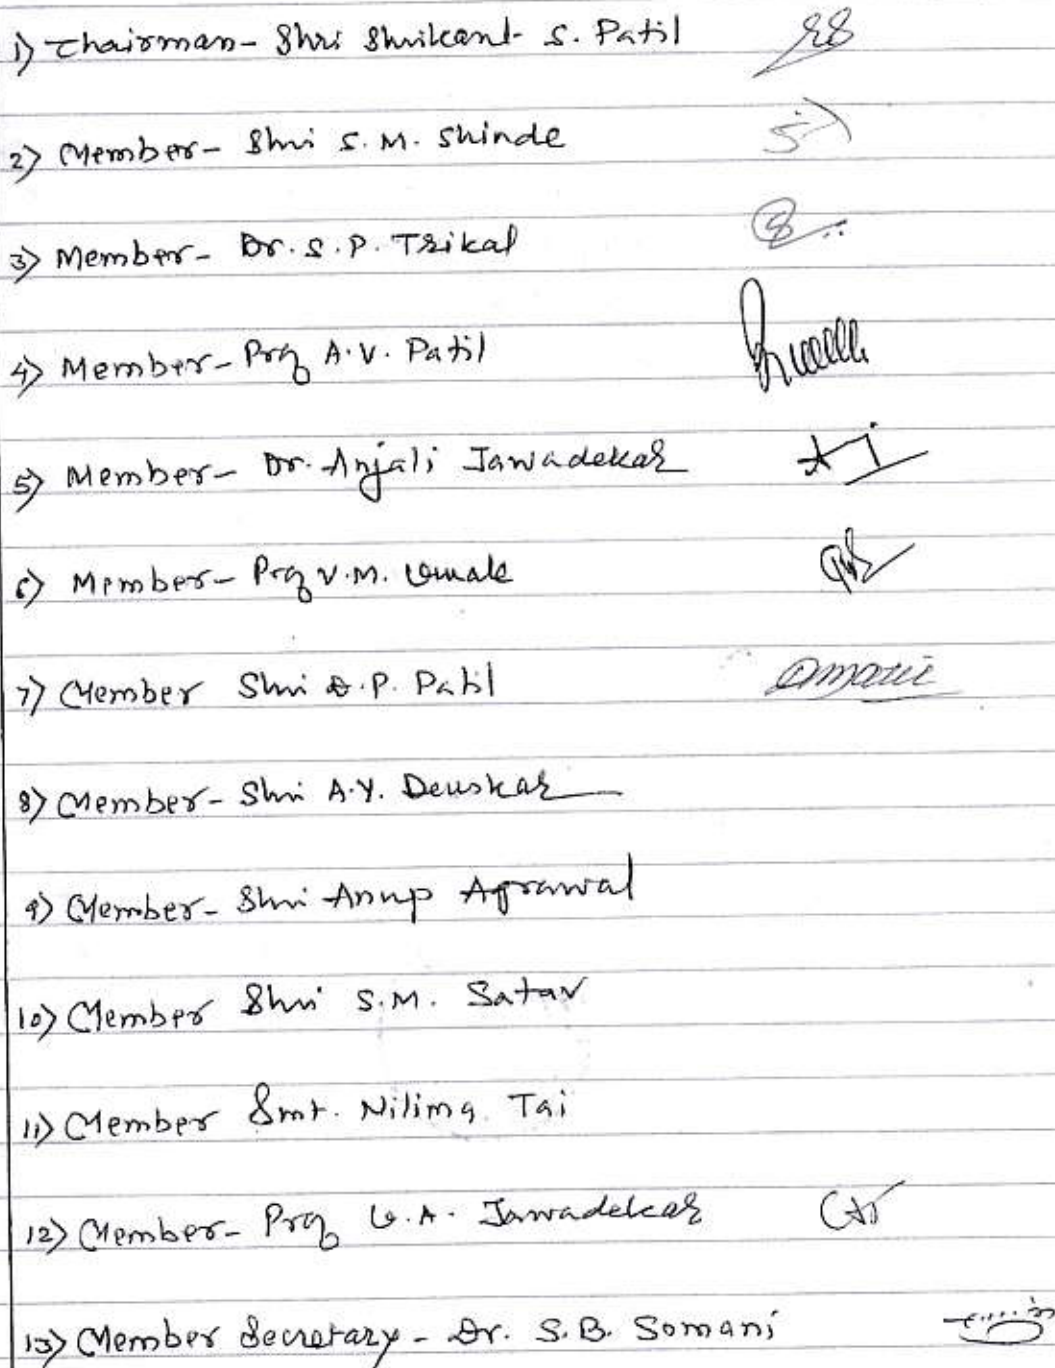 1) Chairman- Shri Shrikant S. Patil
2) Member- Shri S.M. Shinde
3) Member- Dr. S.P. Trikal
4) Member- Prof A.V. Patil
5) Member- Dr. Anjali Jawadekar
6) Member- Prof V.M. Umale
7) Member Shri D.P. Patil
8) Member- Shri A.Y. Deuskar
9) Member- Shri Anup Agrawal
10) Member Shri S.M. Satav
11) Member Smt. Nilima Tai
12) Member- Prof U.A. Jawadekar
13) Member Secretary - Dr. S.B. Somani